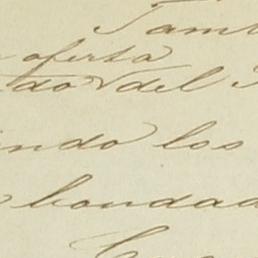 Tam
oferta
do del
ndo los
bondad